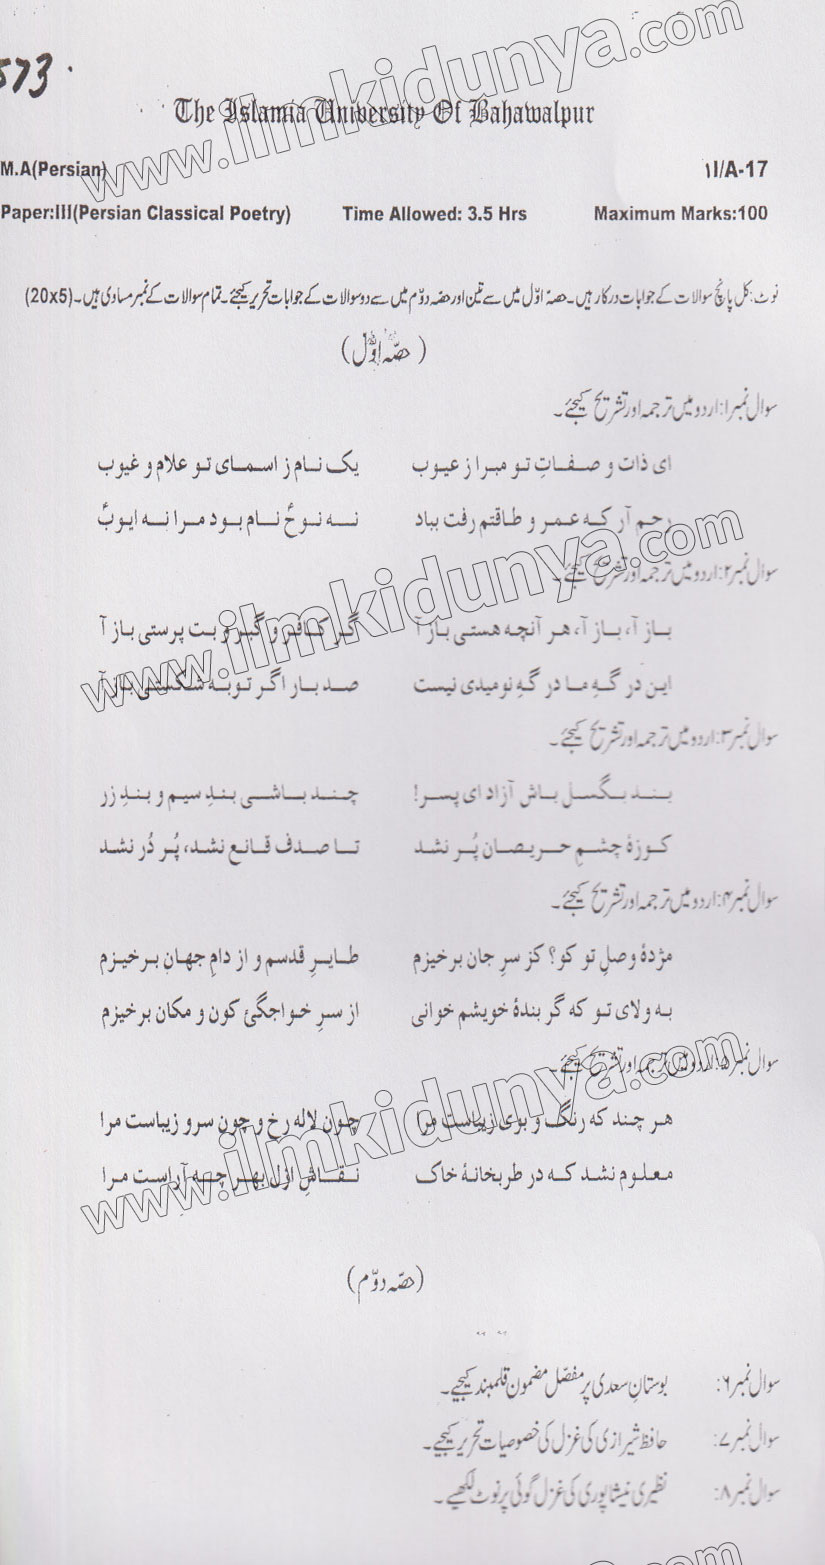 573
www.ilmkidunya.com
The Islamia University Of Bahawalpur
M.A(Persian) ١I/A-17
Paper:III(Persian Classical Poetry) Time Allowed: 3.5 Hrs Maximum Marks:100
نوٹ: کل پانچ سوالات کے جوابات درکار ہیں۔ حصہ اوّل میں سے تین اور حصہ دوّم میں سے دو سوالات کے جوابات تحریر کیجئے۔ تمام سوالات کے نمبر مساوی ہیں۔ (20x5)
(حصّہ اوّل)
سوال نمبر۱: اردو میں ترجمہ اور تشریح کیجئے۔
ای ذات و صفاتِ تو مبرا ز عیوب یک نام ز اسمای تو علام و غیوب
رحم آر که عمر و طاقتم رفت بباد نه نوحؑ نام بود مرا نه ایوبؑ
سوال نمبر۲: اردو میں ترجمہ اور تشریح کیجئے۔
باز آ، باز آ، هر آنچه هستی باز آ گر کافر و گبر و بت پرستی باز آ
www.ilmkidunya.com
این در گهِ ما در گهِ نومیدی نیست صد بار اگر توبه شکستی باز آ
سوال نمبر۳: اردو میں ترجمہ اور تشریح کیجئے۔
بند بگسل باش آزاد ای پسر! چند باشی بندِ سیم و بندِ زر
کوزۂ چشمِ حریصان پُر نشد تا صدف قانع نشد، پُر دُر نشد
سوال نمبر۴: اردو میں ترجمہ اور تشریح کیجئے۔
مژدۂ وصلِ تو کو؟ کز سرِ جان برخیزم طایرِ قدسم و از دامِ جهان برخیزم
به ولای تو که گر بندۂ خویشم خوانی از سرِ خواجگئ کون و مکان برخیزم
سوال نمبر۵: اردو میں ترجمہ اور تشریح کیجئے۔
هر چند که رنگ و بوی زیباست مرا چون لاله رخ و چون سرو زیباست مرا
www.ilmkidunya.com
معلوم نشد که در طربخانۂ خاک نقاشِ ازل بهر چه آراست مرا
(حصّہ دوّم)
سوال نمبر۶: بوستانِ سعدی پر مفصّل مضمون قلمبند کیجیے۔
سوال نمبر۷: حافظ شیرازی کی غزل کی خصوصیات تحریر کیجیے۔
سوال نمبر۸: نظیری نیشاپوری کی غزل گوئی پر نوٹ لکھیے۔